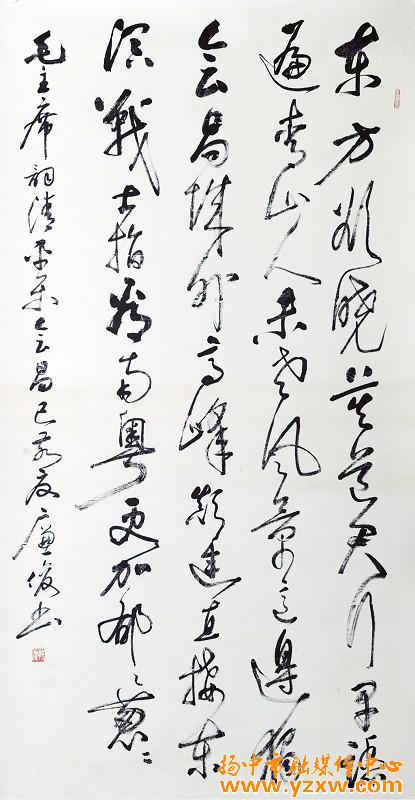 东方欲晓莫道君行早踏
遍青山人未老风景这边独好
会昌城外高峰颠连直接东
溟战士指看南粤更加郁郁葱葱
毛主席词清平乐会昌己亥夏廉俊书
扬中市融媒体中心
www.yzxw.com